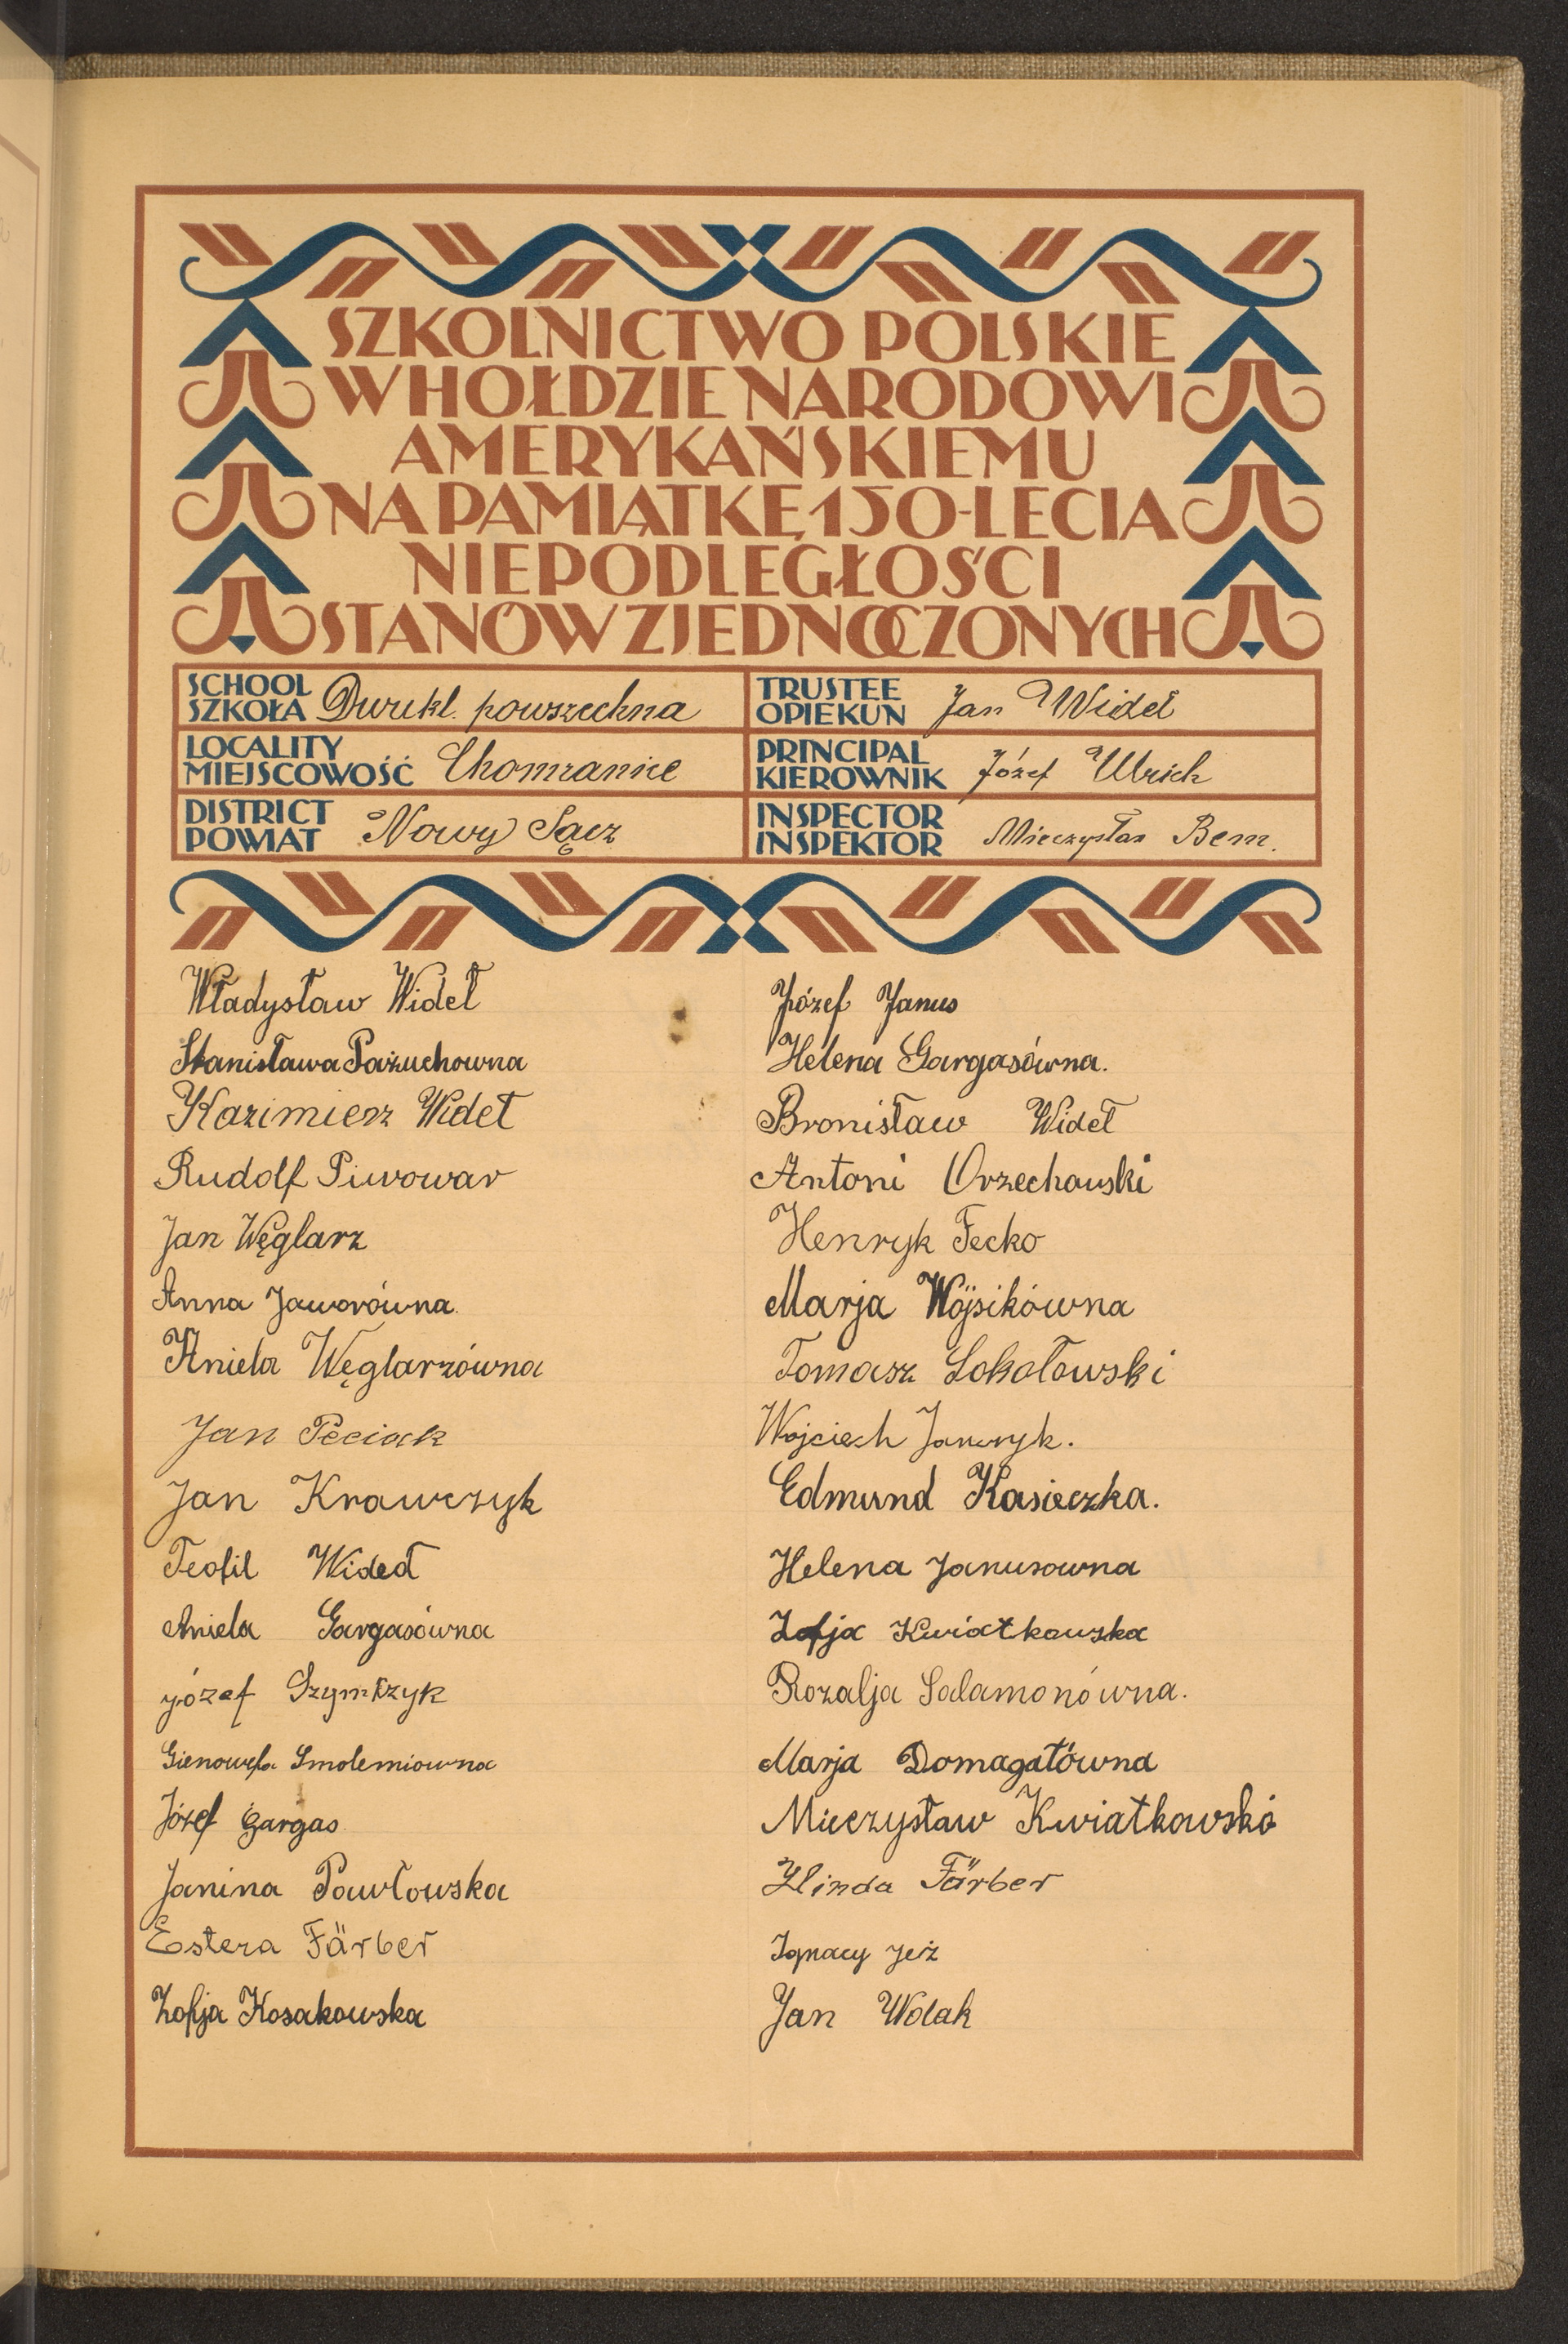 SZKOLNICTWO POLSKIE
W HOŁDZIE NARODOWI
AMERYKAŃSKIEMU
NA PAMIĄTKĘ 150-LECIA
NIEPODLEGŁOŚCI
STANÓW ZJEDNOCZONYCH
SCHOOL
SZKOŁA Dwukl. powszechna
TRUSTEE
OPIEKUN Jan Wideł
LOCALITY
MIEJSCOWOŚĆ Chomranice
PRINCIPAL
KIEROWNIK Józef Ulrich
DISTRICT
POWIAT Nowy Sącz
INSPECTOR
INSPEKTOR Mieczysław Bem.
Władysław Wideł
Stanisława Pażuchowna
Kazimierz Wideł
Rudolf Piwowar
Jan Węglarz
Anna Jaworówna.
Aniela Węglarzówna
Jan Peciak
Jan Krawczyk
Teofil Wideł
Aniela Gargasówna
Józef Szymczyk
Gienowefa Smoleniówna
Józef Gargas
Janina Pawłowska
Estera Färber
Zofja Kosakowska
Józef Janus
Helena Gargasówna.
Bronisław Wideł
Antoni Orzechowski
Henryk Fecko
Marja Wójsikówna
Tomasz Sokołowski
Wojciech Janczyk.
Edmund Kasieczka.
Helena Janusowna
Zofja Kwiatkowska
Rozalja Salamonówna.
Marja Domagałówna
Mieczysław Kwiatkowski
Hinda Färber
Ignacy Jeż
Jan Wolak